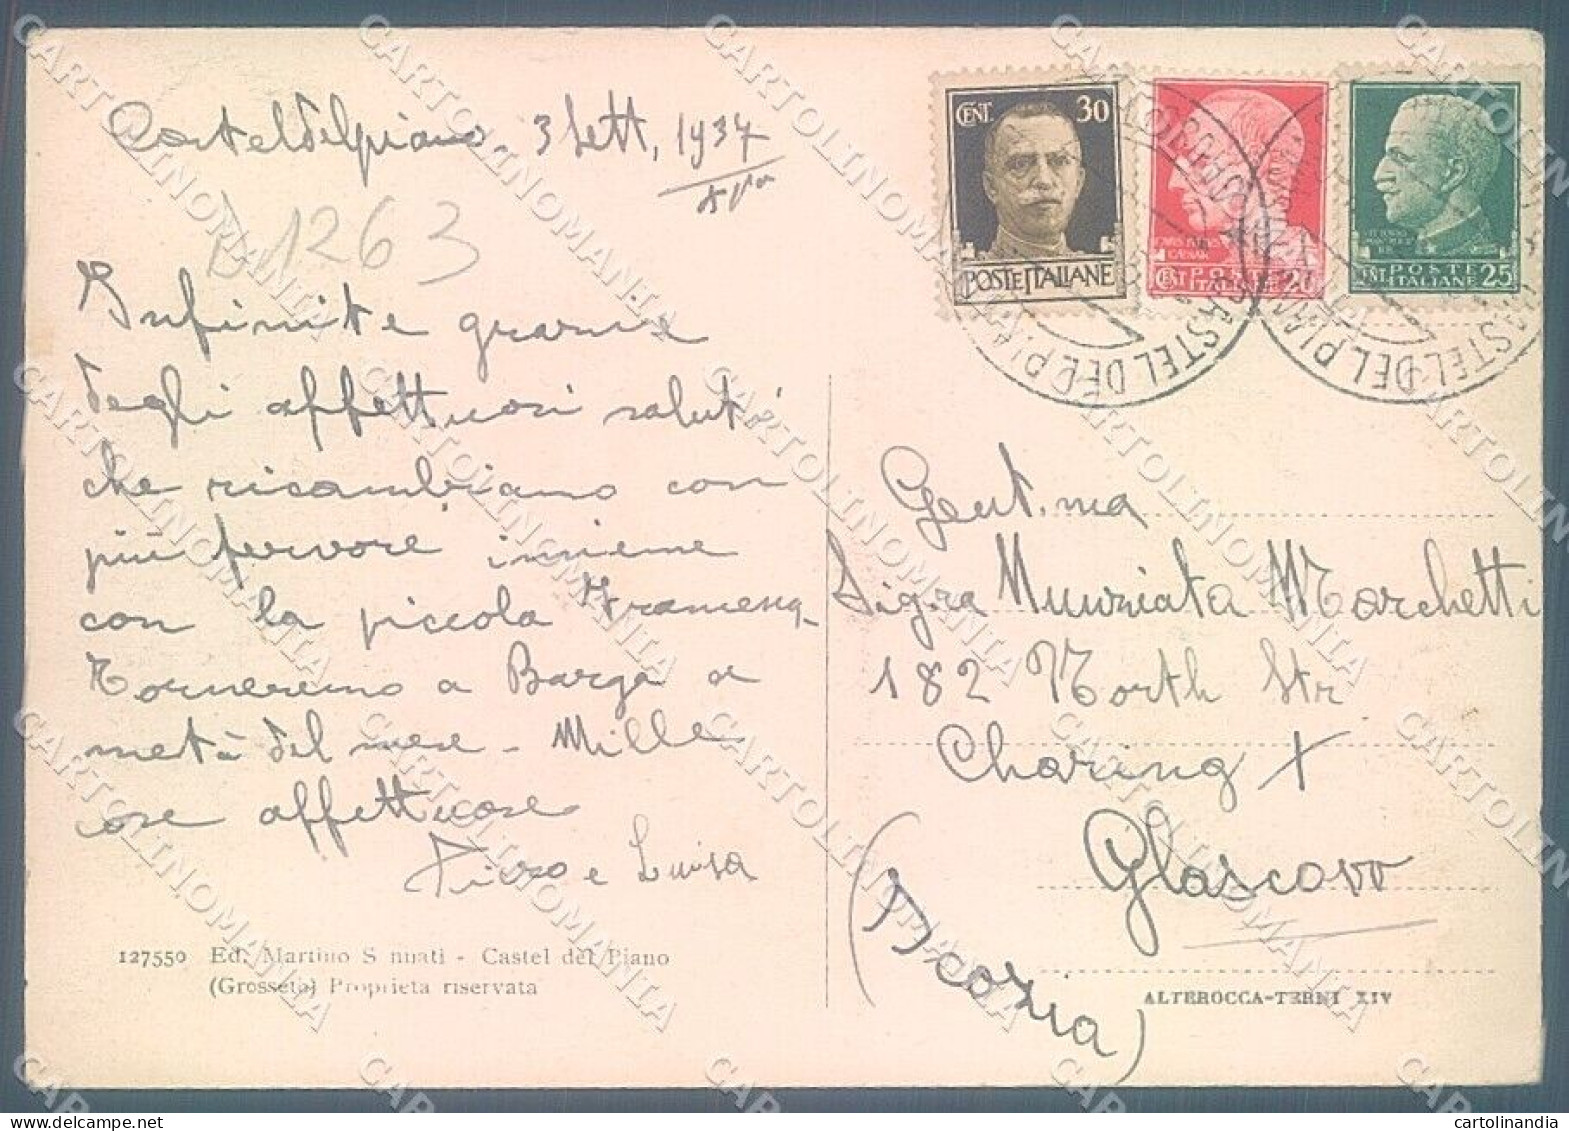 Casteldelpiano - 3 Sett. 1937
XV°
D1263
Infinite grazie
degli affettuosi saluti
che ricambiano con
più fervore insieme
con la piccola Framena.
Torneremo a Barga a
metà del mese - Mille
cose affettuose
Piero e Luisa
127550 Ed. Martino S nnati - Castel del Piano
(Grosseto) Proprieta riservata
CENT. 30
POSTE ITALIANE
CENT POSTE ITALIANE 20
CENT POSTE ITALIANE 25
CASTEL DEL PIANO
CASTEL DEL PIANO
Gent.ma
Sig.ra Nunziata Marchetti
182 North Str
Charing X
Glascow
(Scozia)
ALTEROCCA-TERNI XIV
CARTOLINOMANIA
cartolinandia